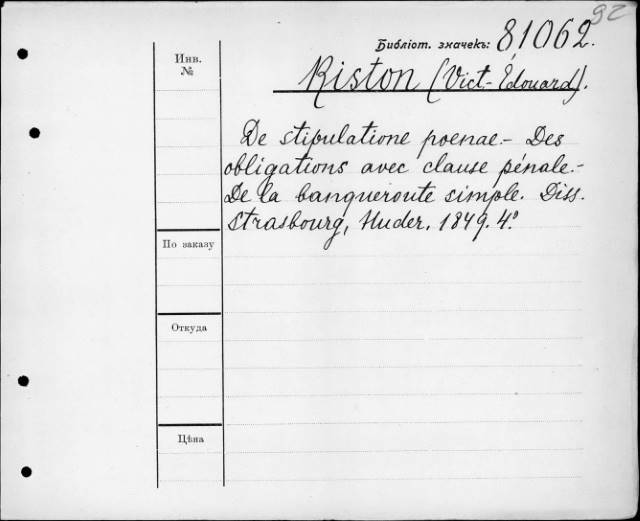 92
Библіот. значекъ: 81062.
Инв.
№
Riston (Vict-Édouard).
De stipulatione poenae.- Des
obligations avec clause pénale.-
De la banqueroute simple. Diss.
Strasbourg, Huder. 1849. 4°
По заказу
Откуда
Цѣна